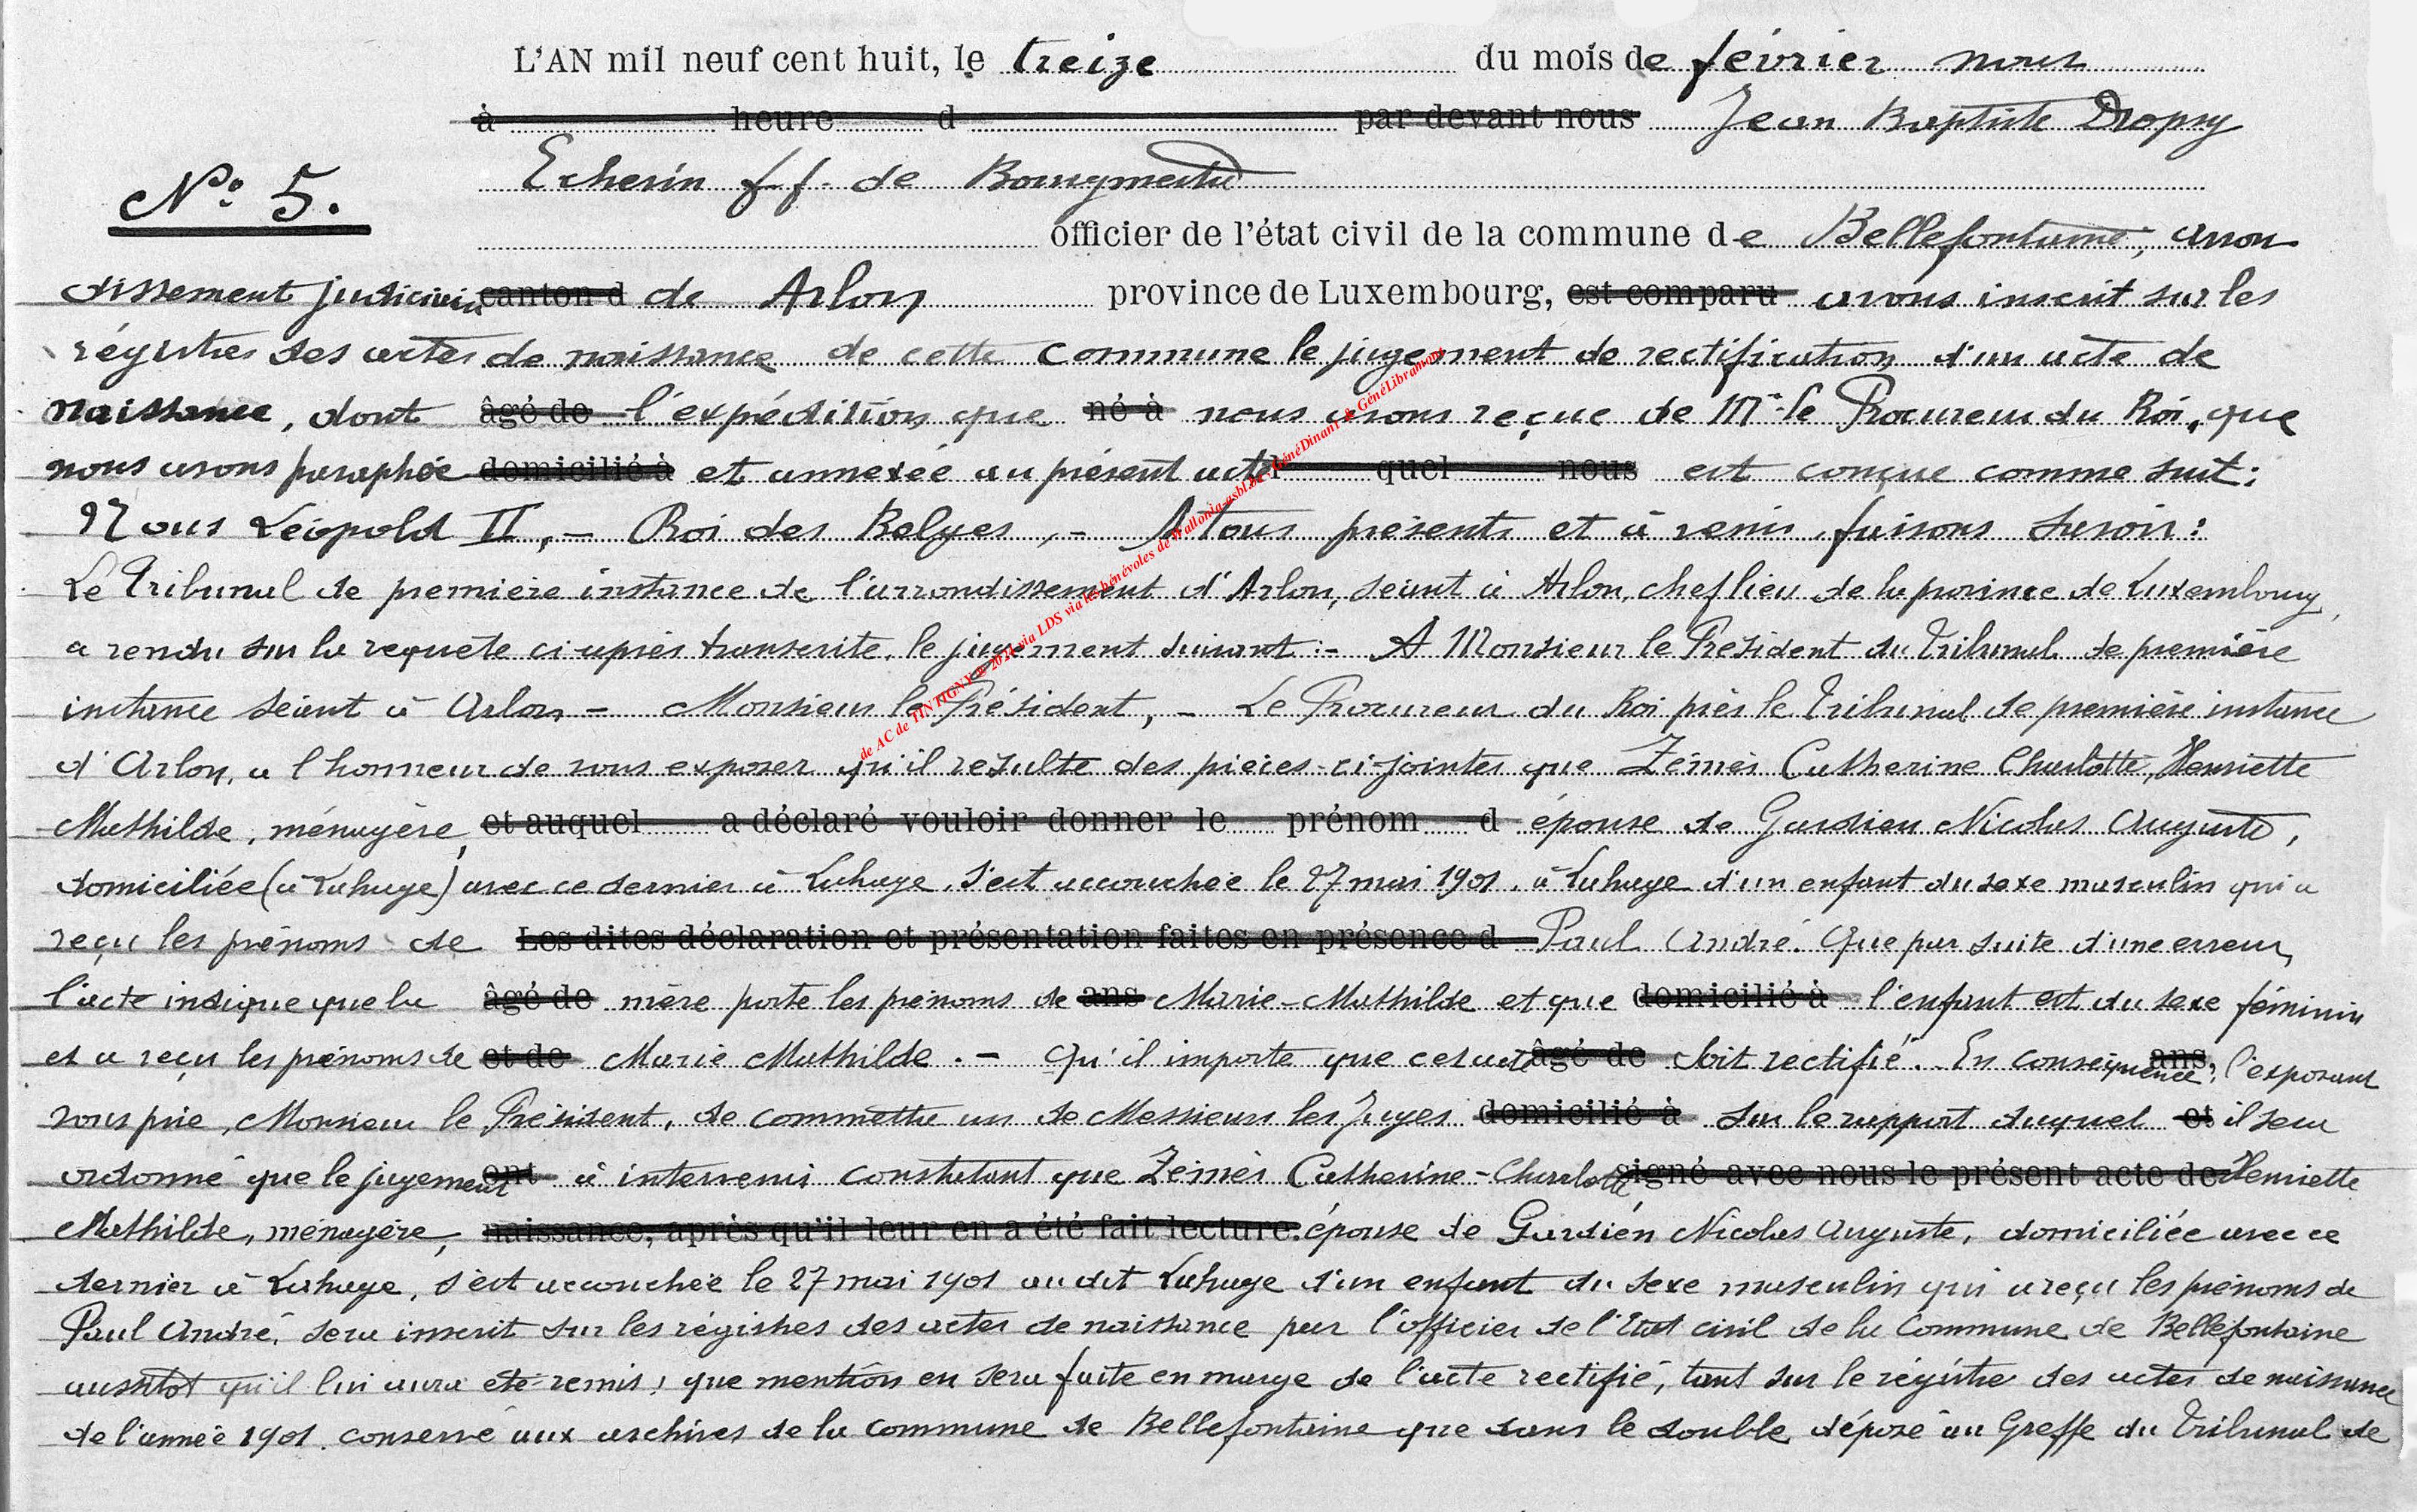 L'AN mil neuf cent huit, le treize du mois de février nous
à heure d par devant nous Jean Baptiste Dropsy
Echevin ff. de Bourgmestre
N° 5.
officier de l'état civil de la commune de Bellefontaine, arron
dissement judiciaire canton d de Arlon province de Luxembourg, est comparu avons inscrit sur les
régistres des actes de naissance de cette commune le jugement de rectification d'un acte de
naissance, dont âgé de l'expédition que né à nous avons reçue de Mr le Procureur du Roi, que
nous avons paraphée domicilié à et annexée au présent acte l quel nous est conçue comme suit:
Nous Léopold II, – Roi des Belges, – A Tous présents et à venir, faisons savoir:
Le Tribunal de première instance de l'arrondissement d'Arlon, séant à Arlon, chef lieu de la province de Luxembourg,
a rendu sur la requête ci-après transcrite, le jugement suivant:- A Monsieur le Président du Tribunal de première
instance séant à Arlon – Monsieur le Président, – Le Procureur du Roi près le Tribunal de première instance
d'Arlon, a l'honneur de vous exposer qu'il résulte des pièces-ci-jointes que Zéimès Catherine Charlotte, Henriette
Mathilde, ménagère, et auquel a déclaré vouloir donner le prénom d épouse de Gardien Nicolas Auguste,
domiciliée (à Lahage) avec ce dernier à Lahage, s'est accouchée le 27 mai 1901, à Lahage d'un enfant du sexe masculin qui a
reçu les prénoms de Les dites déclaration et présentation faites en présence d Paul André. Que par suite d'une erreur,
l'acte indique que la âgé de mère porte les prénoms de ans Marie-Mathilde et que domicilié à l'enfant est du sexe féminin
et a reçu les prénoms de et de Marie Mathilde. – Qu'il importe que cet acte âgé de soit rectifié. En conséquence, ans, l'exposant
vous prie, Monsieur le Président, de commettre un de Messieurs les Juges domicilié à sur le rapport duquel et il sera
ordonné que le jugement ont à intervenir constatant que Zéimès Catherine-Charlotte signé avec nous le présent acte de Henriette
Mathilde, ménagère, naissance, après qu'il leur en a été fait lecture. épouse de Gardién Nicolas Auguste, domiciliée avec ce
dernier à Lahage, s'est accouchée le 27 mai 1901 au dit Lahage d'un enfant du sexe masculin qui a reçu les prénoms de
Paul André, sera inscrit sur les régistres des actes de naissance par l'officier de l'Etat civil de la Commune de Bellefontaine
aussitot qu'il lui aura été remis; que mention en sera faite en marge de l'acte rectifié, tant sur le régistre des actes de naissance
de l'année 1901. conservé aux archives de la commune de Bellefontaine que dans le double déposé au Greffe du Tribunal de
de AC de TINTIGNY © 2021 via LDS via les bénévoles de Wallonia asbl de GénéDinant & GénéLibramont